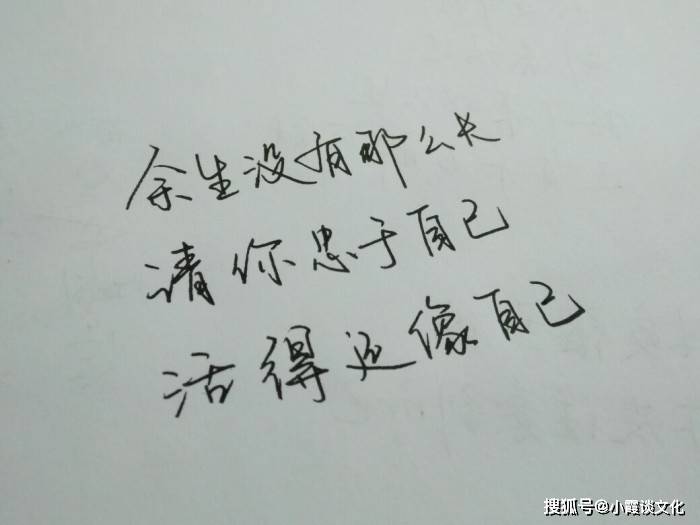 余生没有那么长
请你忠于自己
活得还像自己
搜狐号@小霞谈文化